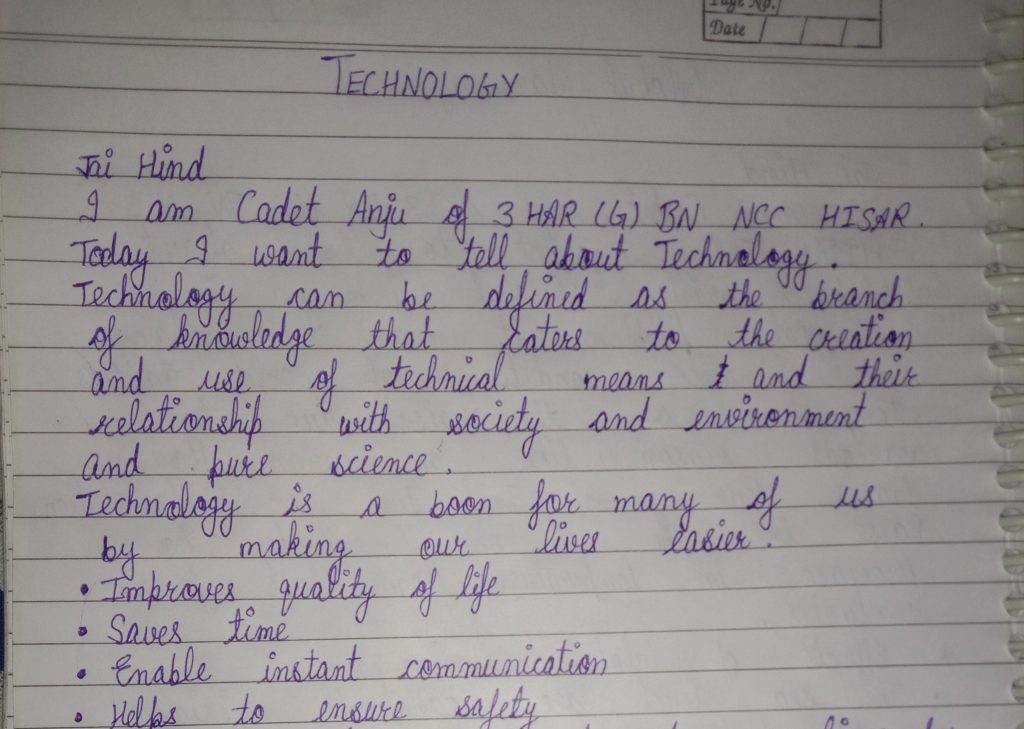 Page No.
Date
TECHNOLOGY
Jai Hind
I am Cadet Anju of 3 HAR (G) BN NCC HISAR.
Today I want to tell about Technology.
Technology can be defined as the branch
of knowledge that caters to the creation
and use of technical means and their
relationship with society and environment
and pure science.
Technology is a boon for many of us
by making our lives easier.
• Improves quality of life
• Saves time
• Enable instant communication
• Helps to ensure safety